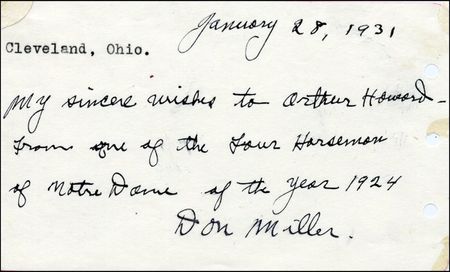 January 28, 1931
Cleveland, Ohio.
My sincere wishes to Arthur Howard -
From one of the Four Horsemen
of Notre Dame of the year 1924
Don Miller.